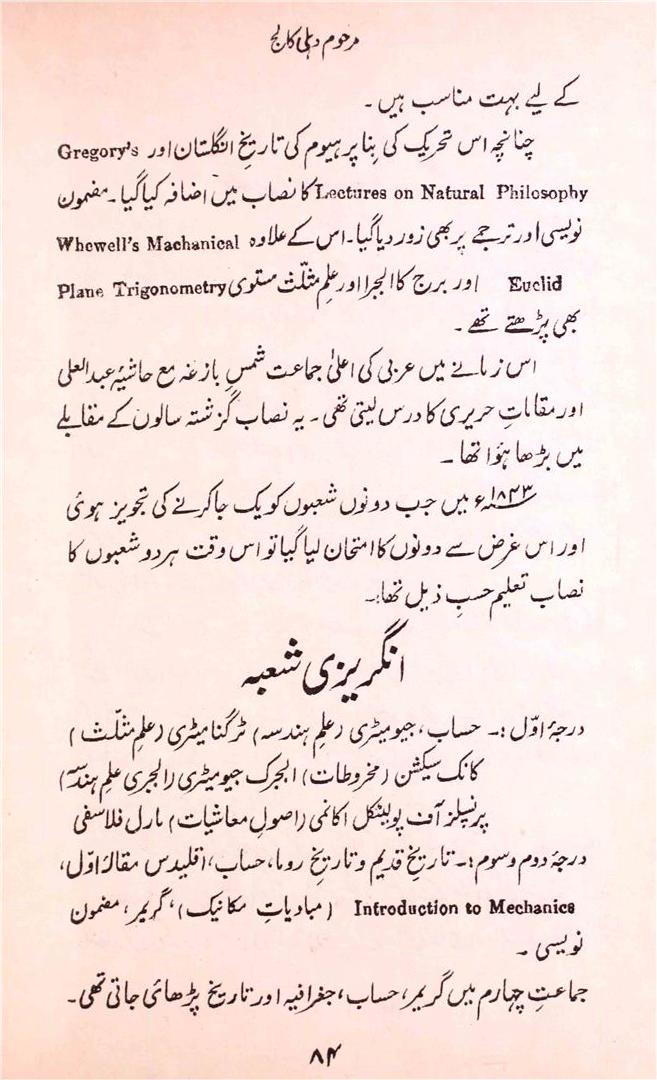 مرحوم دہلی کالج
کے لیے بہت مناسب ہیں۔
چنانچہ اس تحریک کی بِنا پر ہیوم کی تاریخِ انگلستان اور Gregory's
Lectures on Natural Philosophy کا نصاب میں اضافہ کیا گیا۔ مضمون
نویسی اور ترجمے پر بھی زور دیا گیا۔ اس کے علاوہ Whewell's Machanical
Euclid اور برج کا الجبرا اور علمِ مثلّث مستوی Plane Trigonometry
بھی پڑھتے تھے۔
اس زمانے میں عربی کی اعلیٰ جماعت شمسِ بازغہ مع حاشیۂ عبدالعلی
اور مقاماتِ حریری کا درس لیتی تھی۔ یہ نصاب گزشتہ سالوں کے مقابلے
میں بڑھا ہؤا تھا۔
۱۸۴۳ء میں جب دونوں شعبوں کو یک جا کرنے کی تجویز ہوئی
اور اس غرض سے دونوں کا امتحان لیا گیا تو اس وقت ہر دو شعبوں کا
نصاب تعلیم حسبِ ذیل تھا:۔
انگریزی شعبہ
درجۂ اوّل :۔ حساب، جیومیٹری (علمِ ہندسہ) ٹرگنامیٹری (علمِ مثلّث)
کانک سیکشن (مخروطات) الجبرک جیومیٹری (الجبری علمِ ہندسہ)
پرنسپلز آف پولیٹکل اکانمی (اصولِ معاشیات) مارل فلاسفی
درجۂ دوم و سوم :۔ تاریخِ قدیم و تاریخِ روما، حساب، اقلیدس مقالۂ اوّل،
Introduction to Mechanics (مبادیاتِ مکانیک)، گریمر، مضمون
نویسی۔
جماعتِ چہارم میں گریمر، حساب، جغرافیہ اور تاریخ پڑھائی جاتی تھی۔
۸۴